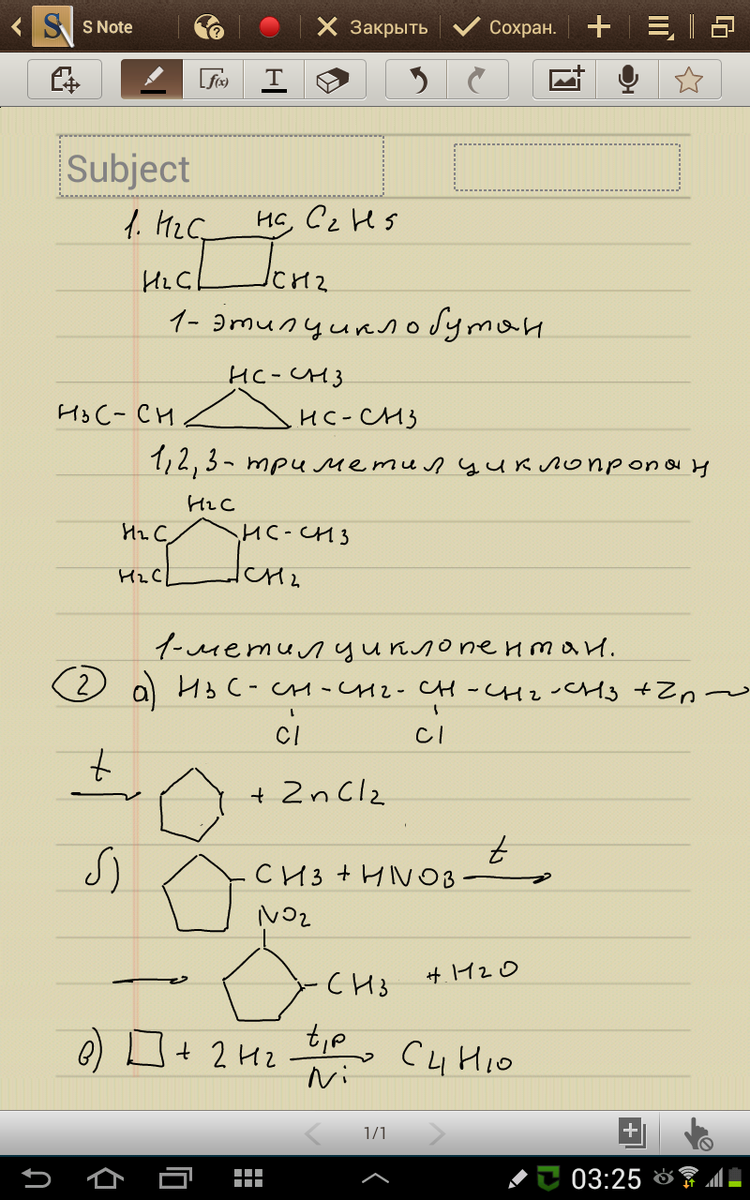 S Note
Закрыть
Сохран.
f(x)
T
Subject
1. H2C HC C2H5
H2C CH2
1-этилциклобутан
HC-CH3
H3C-CH HC-CH3
1,2,3-триметилциклопропан
H2C
H2C HC-CH3
H2C CH2
1-метилциклопентан.
2 а) H3C-CH-CH2-CH-CH2-CH3+Zn
Cl Cl
t
+ ZnCl2
б) CH3+HNO3 t
NO2
-CH3 +H2O
в) + 2H2 t,p Ni C4H10
1/1
03:25